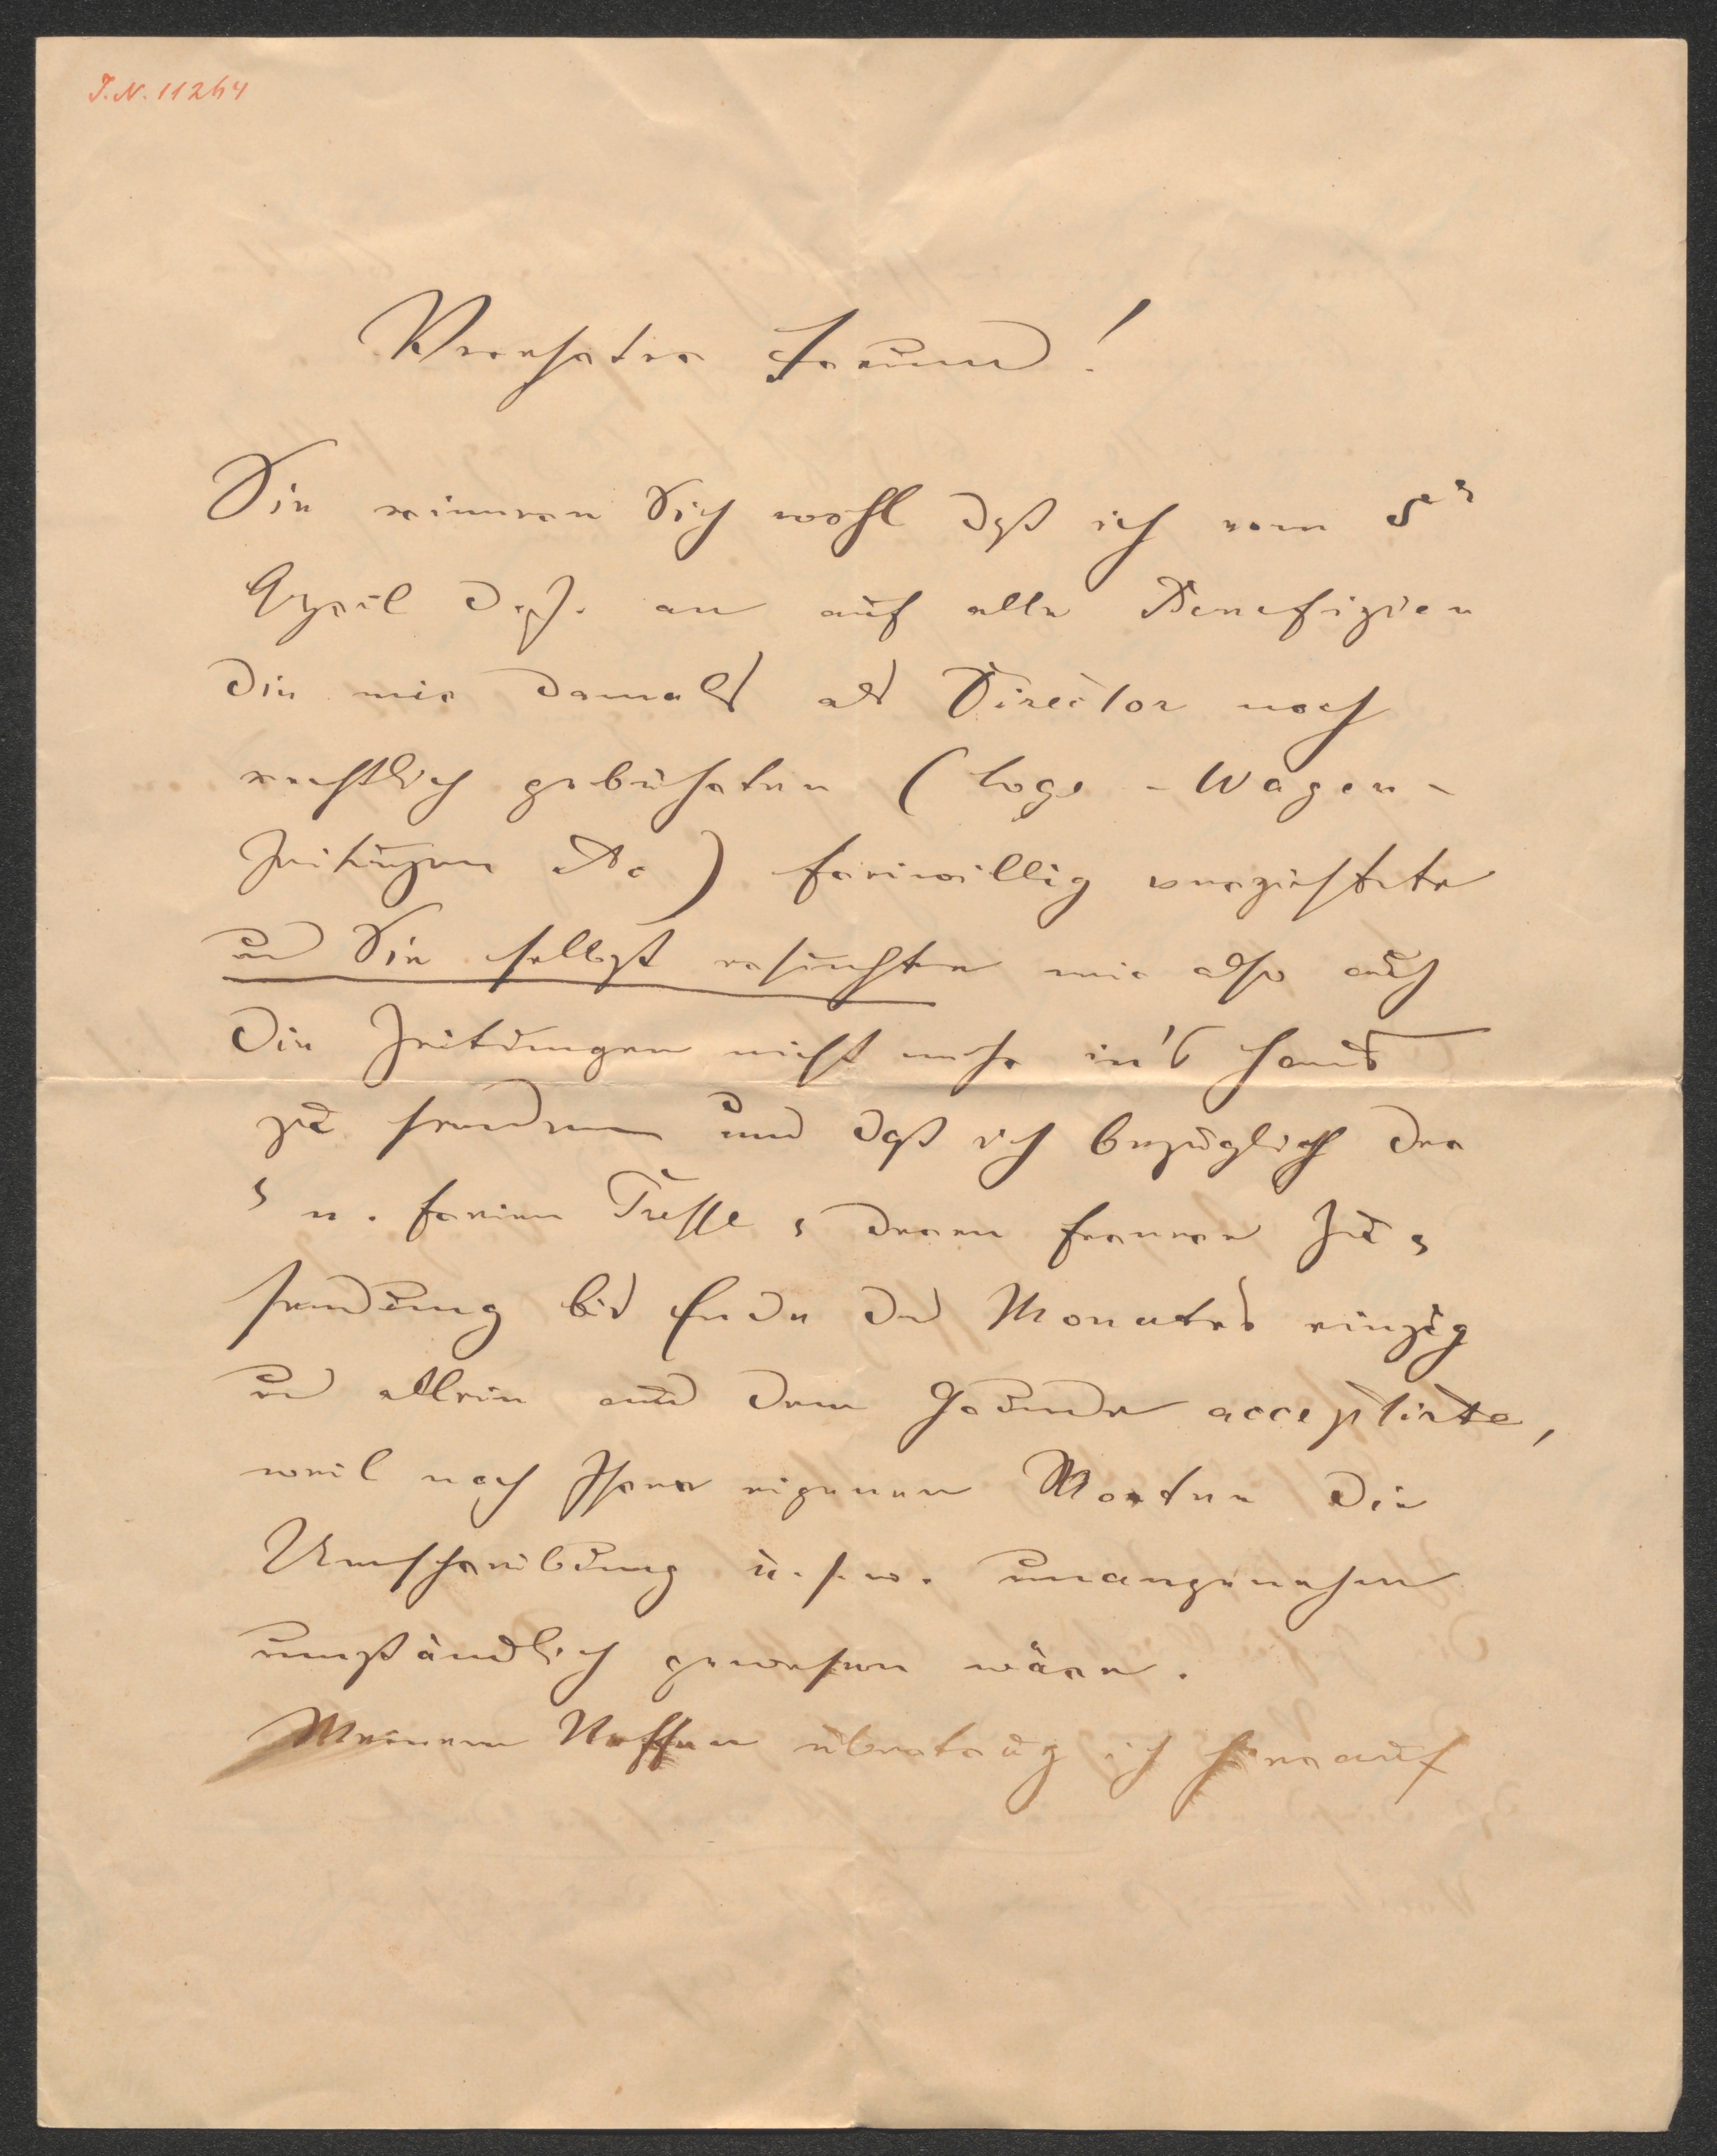 I.N. 11264
Verehrter Freund!
Sie erinnern Sich wohl daß ich vom 5n
April d. J. an auf alle Benefizien
die mir damals als Director noch
rechtlich gebührten (Loge - Wagen -
Zeitungen etc) freiwillig verzichtete
und Sie selbst ersuchte mir also auch
die Zeitungen nicht mehr in's Haus
zu senden und daß ich bezüglich der
n. freien Presse, deren fernere Zu-
sendung bis Ende des Monates einzig
und allein aus dem Grunde acceptirte,
weil nach Ihren eigenen Worten die
Umschreibung u. s. w. unangenehm
umständlich gewesen wäre.
Meinem Neffen übertrug ich hierauf